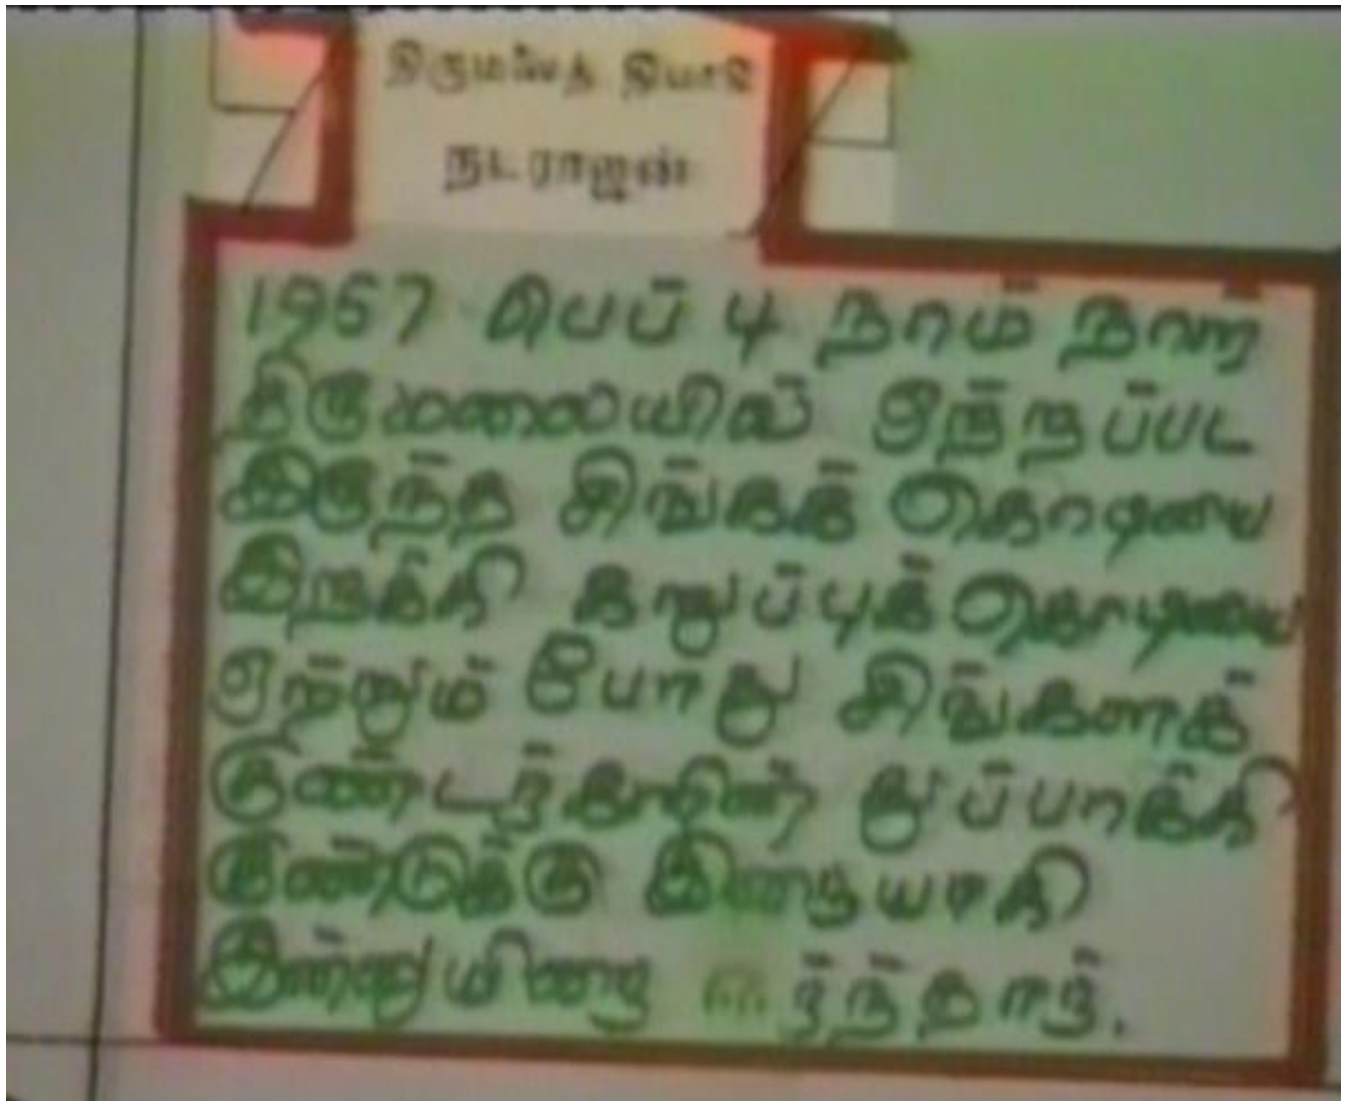 திருமலைத் தியாகி
நடராஜன்
1957 பெப் 4 நாம் நாள்
திருமலையில் ஏற்றப்பட
இருந்த சிங்கக் கொடியை
இறக்கி கறுப்புக் கொடியை
ஏற்றும் போது சிங்களக்
குண்டர்களின் துப்பாக்கி
குண்டுக்கு இரையாகி
இன்னுயிரை ஈர்ந்தார்.